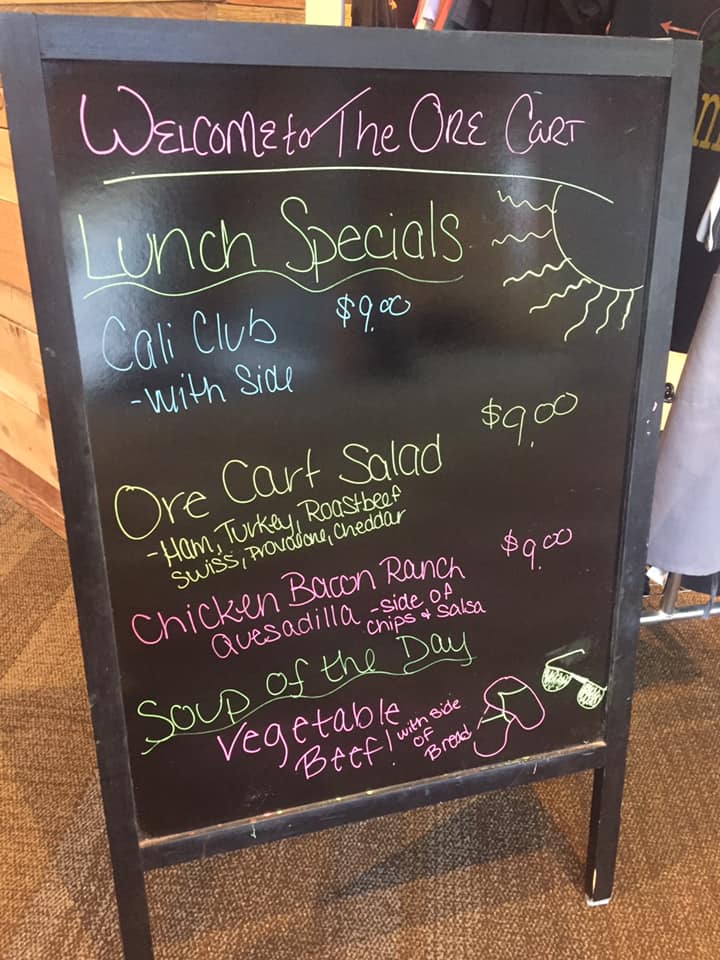 Welcome to The Ore Cart
Lunch Specials
Cali Club $9.00
-With Side
$9.00
Ore Cart Salad
-Ham, Turkey, Roastbeef
Swiss, Provolone, Cheddar
$9.00
Chicken Bacon Ranch
Quesadilla -side of
chips & Salsa
Soup of the Day
Vegetable
Beef! with side
of
Bread